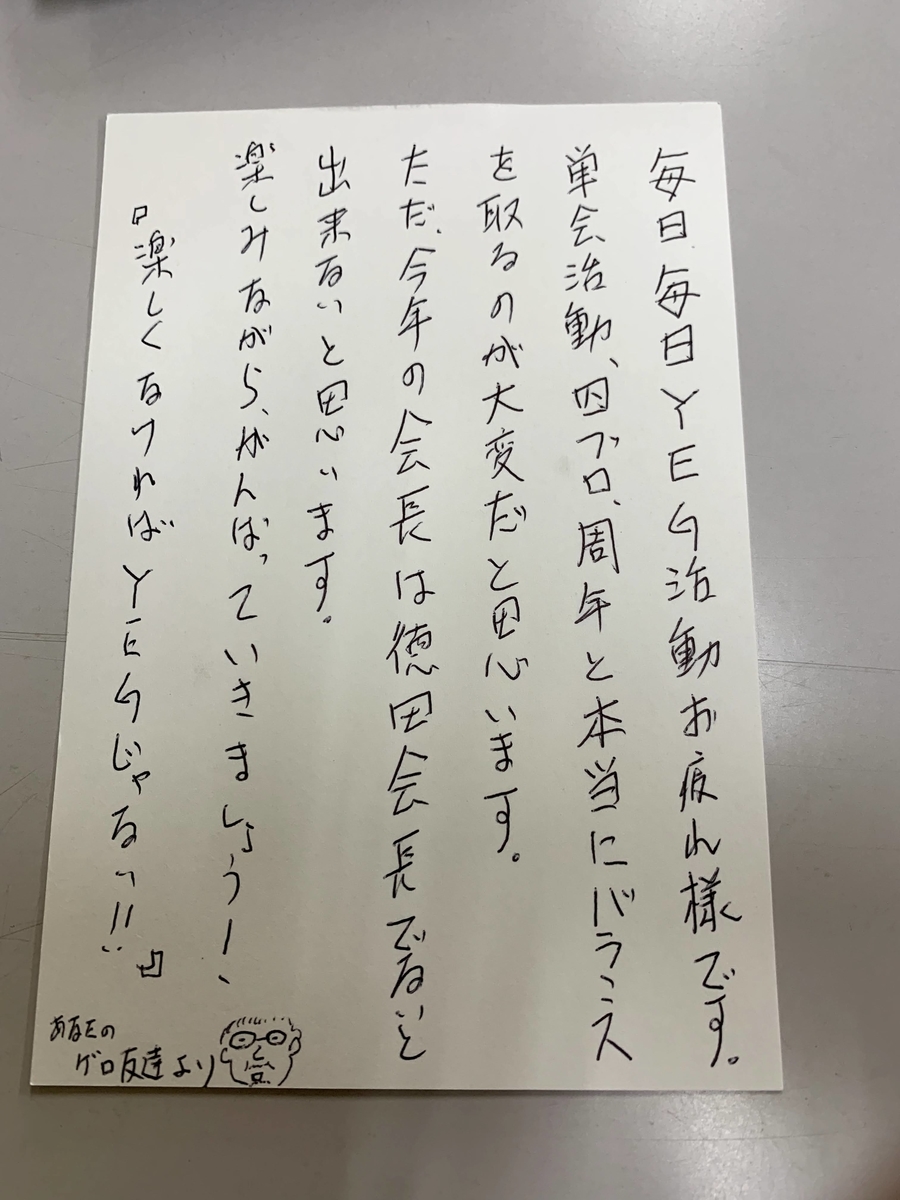 毎日毎日YEG活動お疲れ様です。
単会活動、四ブロ、周年と本当にバランス
を取るのが大変だと思います。
ただ、今年の会長は徳田会長でないと
出来ないと思います。
楽しみながら、がんばっていきましょう!、
『楽しくなければYEGじゃなっ!!』
あなたの
ゲロ友達より